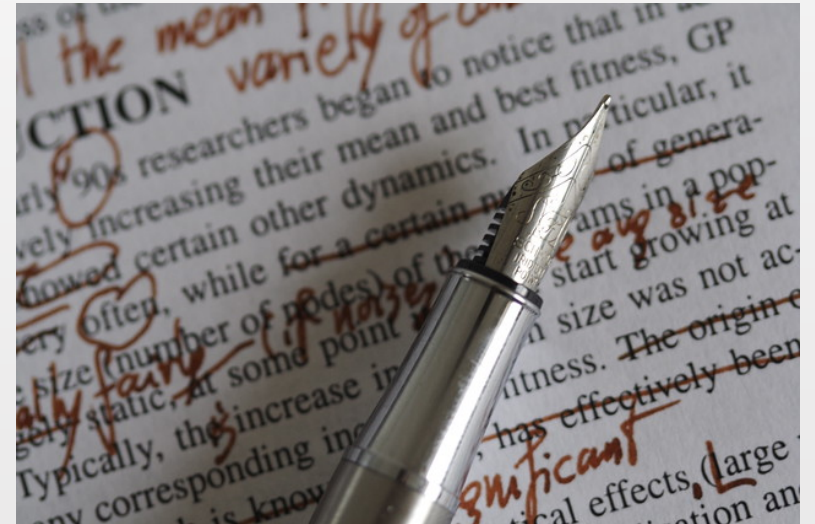 the mean
variety of
UCTION
rly 90s researchers began to notice that in a
vely increasing their mean and best fitness, GP
howed certain other dynamics. In particular, it
ery often, while for a certain nu of genera-
e avg size
size (number of nodes) of the ams in a pop-
ally fairly (if noisy
gely static, at some point start growing at
Typically, the increase in n size was not ac-
ny corresponding inc itness. The origin o
is know , has effectively been
gnificant
tical effects, (large
ation an